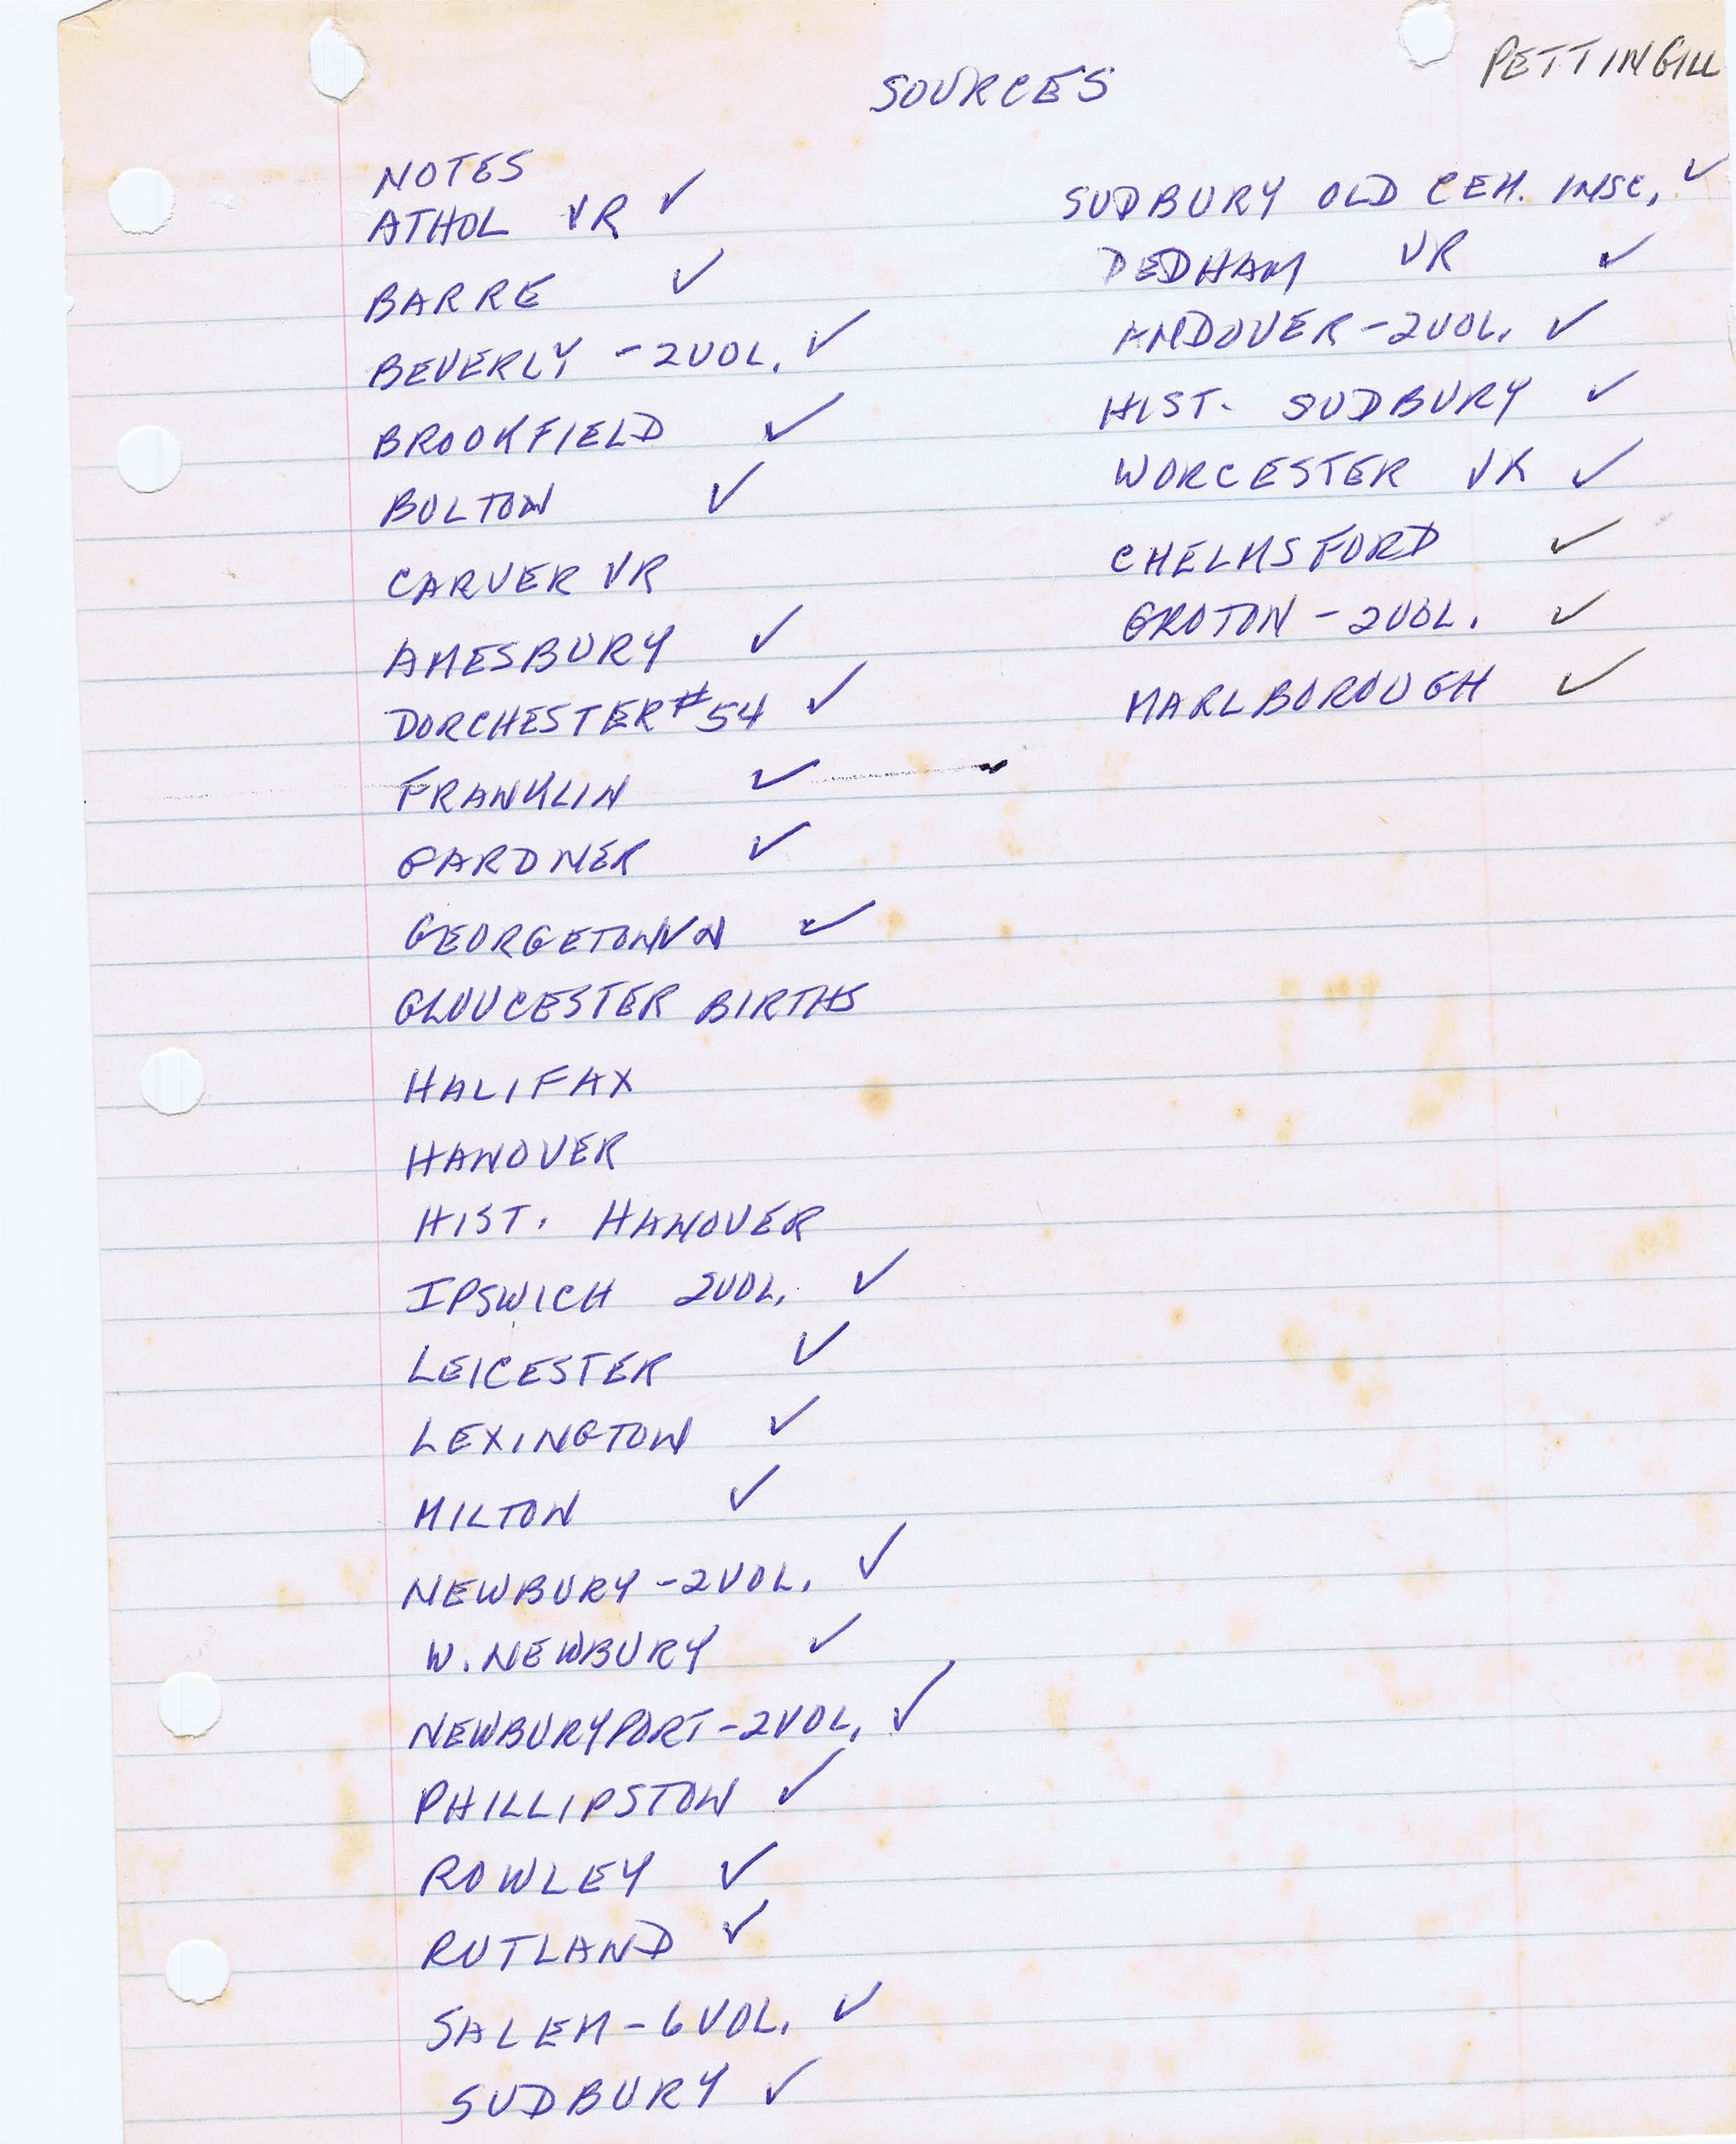 PETTINGILL
SOURCES
NOTES
ATHOL VR ✓
BARRE ✓
BEVERLY - 2 VOL. ✓
BROOKFIELD ✓
BOLTON ✓
CARVER VR
AMESBURY ✓
DORCHESTER #54 ✓
FRANKLIN ✓
GARDNER ✓
GEORGETOWN ✓
GLOUCESTER BIRTHS
HALIFAX
HANOVER
HIST. HANOVER
IPSWICH 2 VOL. ✓
LEICESTER ✓
LEXINGTON ✓
MILTON ✓
NEWBURY - 2 VOL. ✓
W. NEWBURY ✓
NEWBURYPORT - 2 VOL. ✓
PHILLIPSTON ✓
ROWLEY ✓
RUTLAND ✓
SALEM - 6 VOL. ✓
SUDBURY ✓
SUDBURY OLD CEM. INSC. ✓
DEDHAM VR ✓
ANDOVER - 2 VOL. ✓
HIST. SUDBURY ✓
WORCESTER VR ✓
CHELMSFORD ✓
GROTON - 2 VOL. ✓
MARLBOROUGH ✓